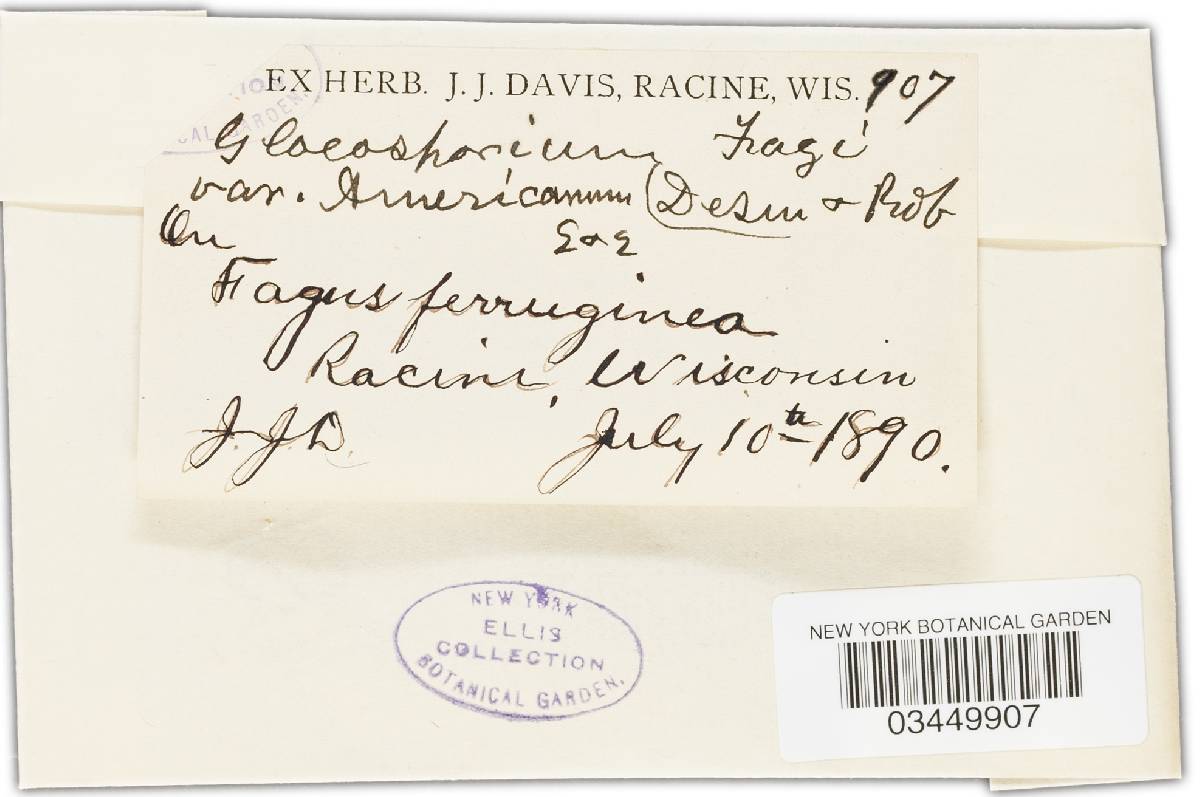 EX HERB. J. J. DAVIS, RACINE, WIS. 907
Gloeosporium Fagi
var. Americanum (Desm & Rob
E & E
On
Fagus ferruginea
Racine, Wisconsin
J. J. D. July 10th 1890.
NEW YORK
ELLIS
COLLECTION
BOTANICAL GARDEN.
NEW YORK BOTANICAL GARDEN
03449907